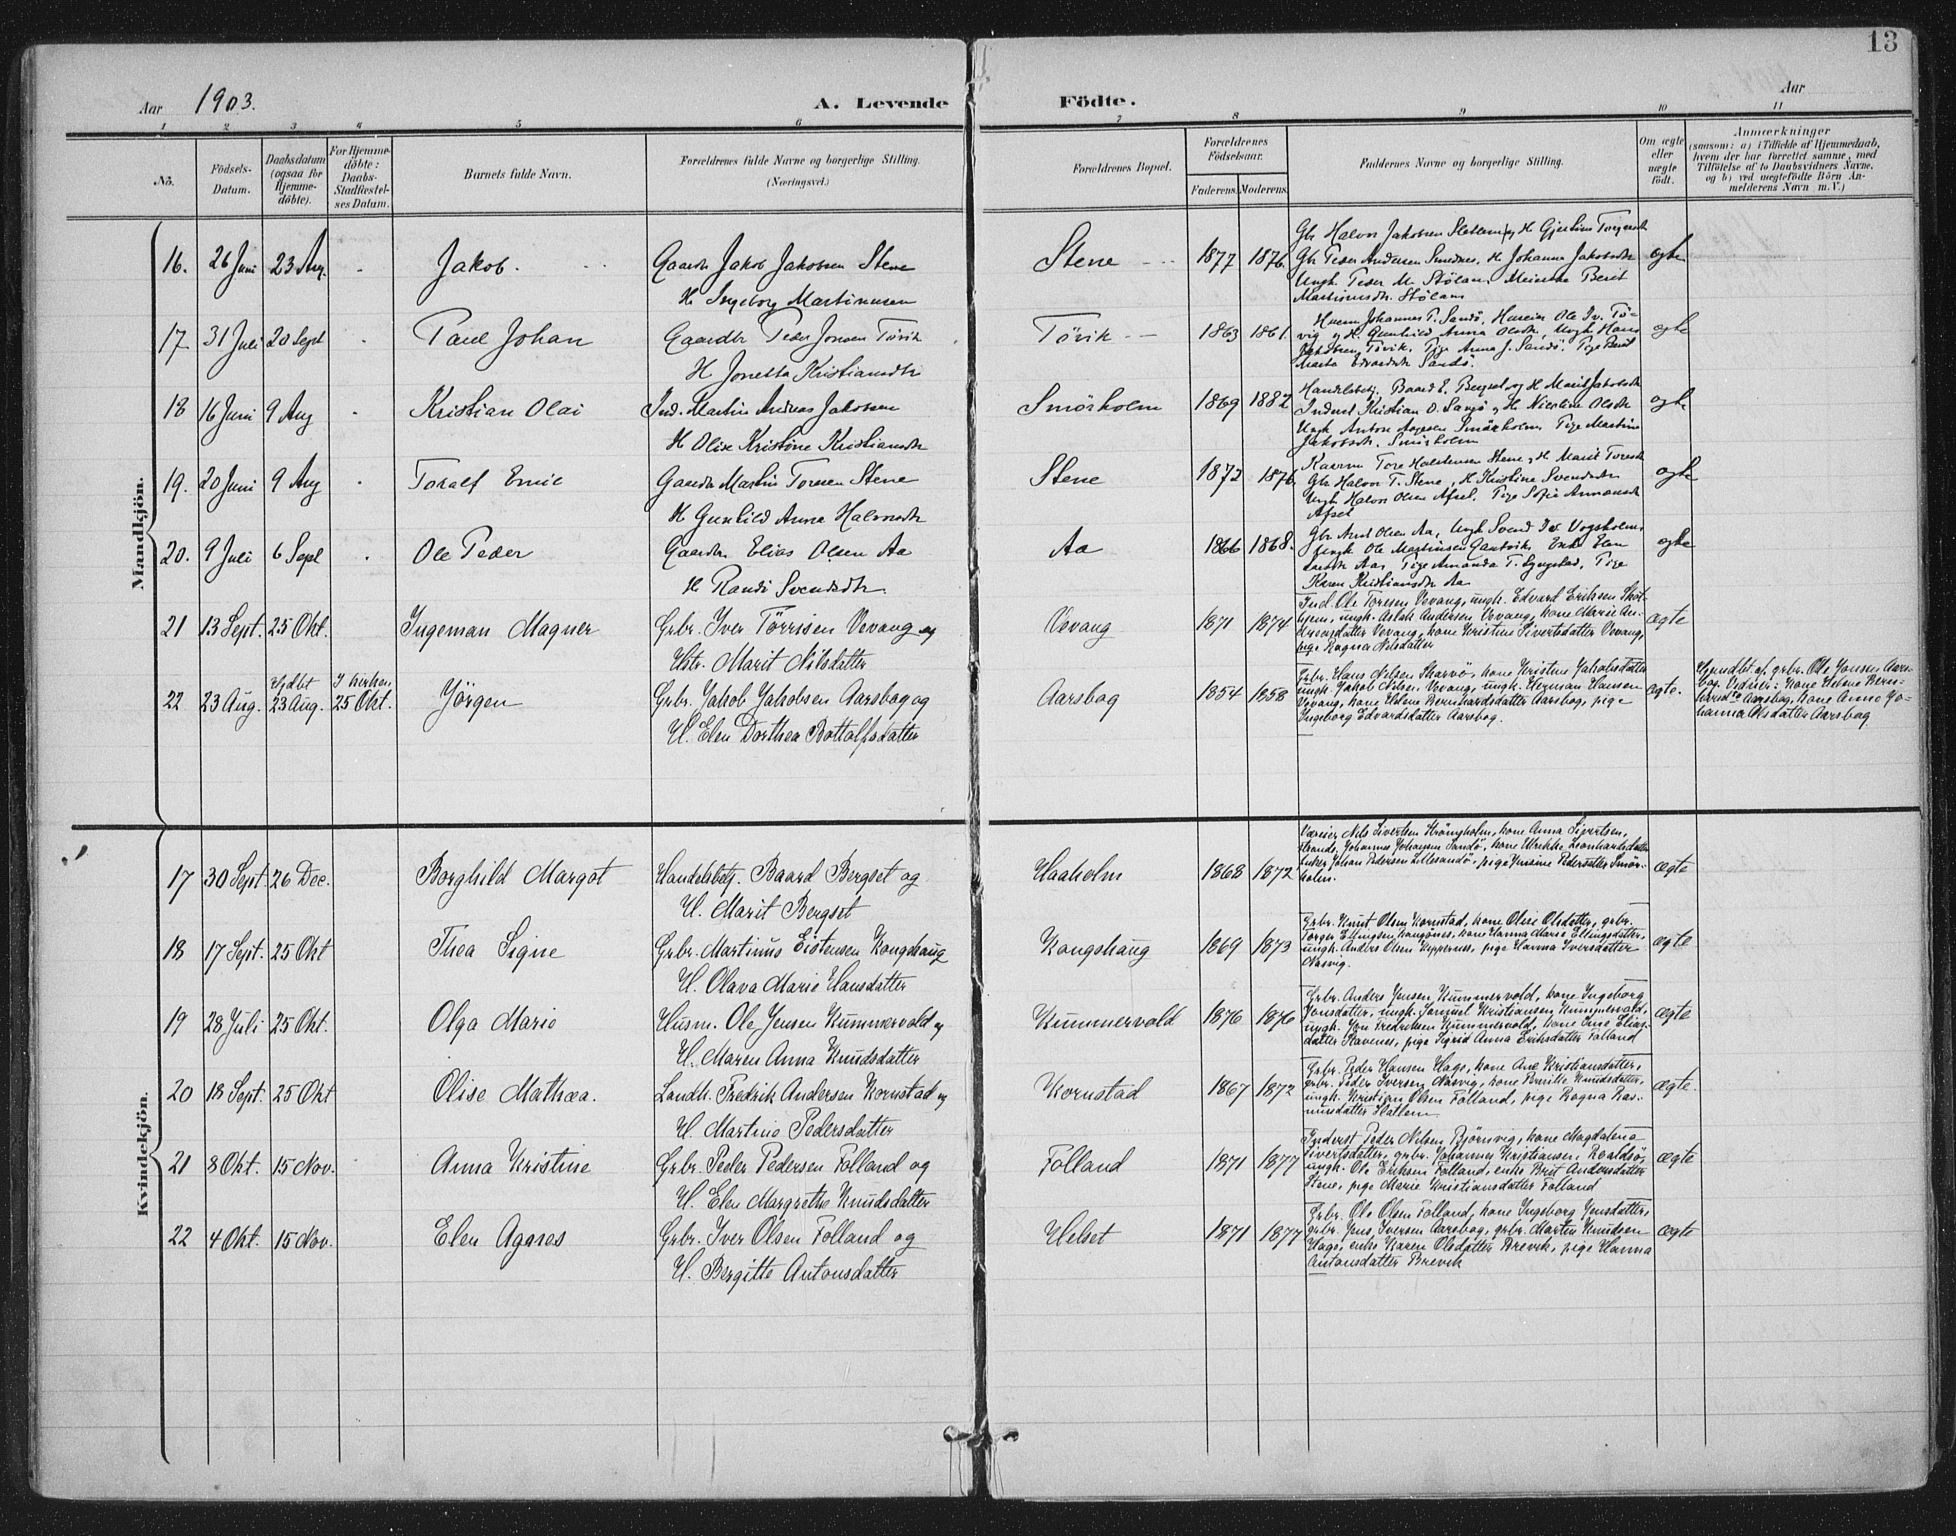 13
Aar 1903. A. Levende Födte. Aar
1 2 3 4 5 6 7 8 9 10 11
No. Födsels-Datum. Daabsdatum (ogsaa for Hjemme-döbte). For Hjemme-döbte: Daabs-Stadfæstel-ses Datum. Barnets fulde Navn. Forældrenes fulde Navne og borgerlige Stilling. (Næringsvei.) Forældrenes Bopæl. Forældrenes Födselsaar. Faderens. Moderens. Faddernes Navne og borgerlige Stilling. Om ægte eller uægte födt. Anmærkninger (saasom: a) i Tilfælde af Hjemmedaab, hvem der har forrettet samme, med Tilföielse af to Daabsvidners Navne, og b) ved uægtefödte Börn An-melderens Navn m. V.)
Mandkjön.
16. 26 Juni 23 Aug. Jakob. Gaardb. Jakob Jakobsen Stene
H. Ingeborg Martinusen
Stene 1877 1876. ægte
Gbr. Halvor Jakobsen H.
Gbr Peder Andersen H. Johanna Jakobsdtr
Ungk. Peder M. Stölan, Berit
Martinusdtr. Stölan
17 31 Juli 20 Sept Paul Johan Gaardbr Peder Jonsen Törvik
H Jonetta Kristiansdtr
Törvik 1863 1861. ægte
Johannes P. Sandö, Ole Iv. Tö-
vig og H. Gunhild Anna Olsdtr, Ungk Hans
Jakobsen Törvik, Pige Anna J. Sandö, Pige Berit
Marta Edvardsdtr Sandö.
18 16 Juni 9 Aug Kristian Olai Ind. Martin Andreas Jakobsen
H Olise Kristine Kristiansdtr
Smörholm 1869 1882 ægte
Handelsbetj. Baard E. Bergset og H Marit Jakobsdtr
Inderst Kristian O. H. Nikoline Olsdtr
Ungk Anton Smörholm Pige Martine
Jakobsdtr. Smörholm
19. 20 Juni 9 Aug Toralf Emil Gaardbr Martin Toresen Stene
H Gunhild Anna Halvorsdtr
Stene 1872 1876. ægte
Tore Halstensen Stene, H Marit Toresdtr
Gbr Halvor T. Stene, H Kristine Svendsdtr
Ungk Halvor Olsen Pige Sofie
20. 9 Juli 6 Sept Ole Peder Gaardbr Elias Olsen Aa
H Randi Svendsdtr.
Aa 1866 1868. ægte
Gbr Olsen Aa, Ungk Svend Vogsholm,
Ungk Ole Martinsen Enke Elen
Aas Pige Amanda T. Pige
Karen Kristiansdtr Aa
21 13 Sept. 25 Okt. Ingeman Magner Grbr. Iver Törrisen Vevang og
Hstr. Marit Nilsdatter
Vevang 1871 1874 ægte
Ind. Ole Toresen Vevang, ungk. Edvard Eriksen Skot-
hjem, ungk. Aslak Andersen Vevang, kone Marie An-
Vevang, kone Kristine Sivertsdatter Vevang,
pige Ragna Nilsdatter
22 23 Aug. Hjdbt 23 Aug. I kirken 25 Okt. Jörgen Grbr. Jakob Jakobsen Aarsbog og
H. Elen Dorthea Bottolfsdatter
Aarsbog 1854 1858 ægte.
Grbr. Hans Nilsen Skarvö, kone Kristine Jakobsdatter
ungk. Jakob Nilsen Vevang, ungk. Herman Hansen
Vevang, kone Helene Bernhardsdatter Aarsbog, pige
Ingeborg Edvardsdatter Aarsbog.
Hjemdbt af grbr. Ole Jonsen Aars-
bog. Vidner: kone Helene Bern-
hardsdtr Aarsbog, kone Anne Jo-
hanna Olsdatter Aarsbog
Kvindekjön.
17 30 Sept. 26 Dec. Borghild Margot Handelsbetj. Baard Bergset og
H. Marit Bergset
Haaholm 1868 1872 ægte
Væreier Nils Sivertsen Strömsholm, kone Anna Sivertsen,
Strande, Johannes Johansen Sandö, kone Ulrikke Leonhardsdatter
Johan Pedersen Lillesandö, pige Jensine Pedersdatter Smör-
holm.
18 17 Sept. 25 Okt Thea Signe Grbr. Martinus Eistensen Kongshaug
H. Olava Marie Hansdatter
Kongshaug 1869 1873 ægte
Grbr. Knut Olsen Kornstad, kone Olise Olsdatter, grbr.
Torger Ellingsen kone Hanna Marie Ellingsdatter,
ungk. Anders Olsen Kippernes, pige Hanna Iversdatter
Nasvig.
19 28 Juli 25 Okt. Olga Marie Husm. Ole Jensen Kummervold og
H. Maren Anna Knudsdatter
Kummervold 1876 1876 ægte
Grbr. Anders Jensen Kummervold, kone Ingeborg
Jonsdatter, ungk. Samuel Kristiansen Kummervold,
ungk. Jon Fredriksen Kummervold, kone Ane Elias-
datter Stavenes, pige Sigrid Anna Eriksdatter Folland
20 18 Sept. 25 Okt Olise Mathea. Landh. Fredrik Andersen Kornstad og
H. Martine Pedersdatter
Kornstad 1867 1872 ægte.
Grbr. Peder Hansen Hage, kone Ane Kristiansdatter,
grbr. Peder Iversen Nasvig, kone Knudsdatter,
ungk. Kristian Olsen Folland, pige Ragna Ras-
musdatter Hatlem
21 8 Okt. 15 Nov. Anna Kristine Grbr. Peder Pedersen Folland og
H. Elen Margrethe Knudsdatter
Folland 1871 1877 ægte
Inderst Peder Nilsen Björnvig, kone Magdalena
Sivertsdatter, grbr. Johannes Kristiansen, Roaldsö,
ungk. Ole Eriksen Folland, enke Brit Andersdatter
Stene, pige Marie Kristiansdatter Folland
22 4 Okt. 15 Nov. Elen Agnes Grbr. Iver Olsen Folland og
H. Bergitte Antonsdatter
Helset 1871 1877 ægte
Grbr. Ole Olsen Folland, kone Ingeborg Jensdatter,
grbr. Jens Iversen Aarsbog, grbr. Martin Knudsen
Hage, enke Karen Olsdatter Brevik, pige Hanna
Antonsdatter Brevik